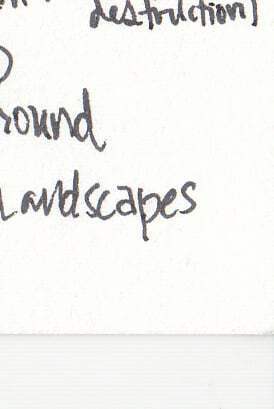 destruction)
round
Landscapes